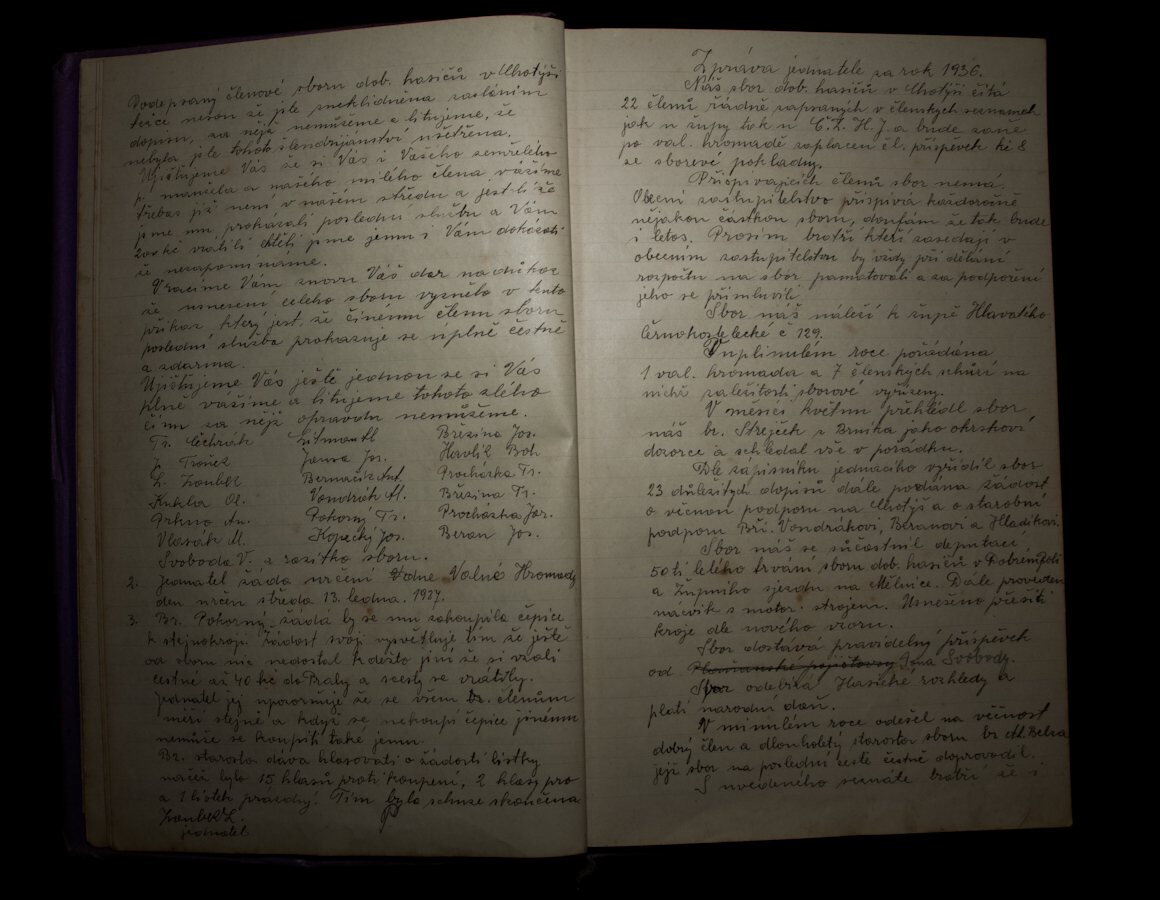 Podepsaný členové sboru dob. hasičů v Chotýši
těžce nesou že jste neklidněna zasláním
dopisu, za nějž nemůžeme a litujeme, že
nebyla jste tohoto šlendrijánství ušetřena.
Ujišťujeme Vás že si Vás i Vašeho zemřelého
p. manžela a našeho milého člena vážíme
třebas již není v našem středu a jest-li že
jsme mu prokázali poslední službu a Vám
200 kč vrátili chtěli jsme jemu i Vám dokázati
že nezapomínáme.
Vracíme Vám znovu Váš dar na důkaz
že usnesení celého sboru vyznělo v tento
příkaz který jest, že činému členu sboru
poslední služba prokazuje se úplně čestně
a zdarma.
Ujišťujeme Vás ještě jednou že si Vás
plně vážíme a litujeme tohoto zlého
činu za nějž opravdu nemůžeme.
Fr. Čechrák Litman Al Březina Jos.
J. Trošek Jansa Jos. Havlík Boh
L. Zoubek Bernačik Ant. Procházka Fr.
Kukla Ol. Vondrák Al. Březina Fr.
Prkno An. Pokorný Fr. Procházka Jar.
Vlasák M. Kopecký Jos. Beran Jos.
Svoboda V. a razítko sboru.
2. Jednatel žádá určení dne Valné Hromady
den určen středa 13. ledna. 1937.
3. Br. Pokorný žádá by se mu zakoupila čepice
k stejnokroji. Žádost svoji vysvětluje tím že ještě
od sboru nic nedostal kdežto jiní že si vzali
čestné až 40 kč do Prahy a cesty se vrátily.
Jednatel jej upozorňuje že se všem čr. členům
měří stejně a když se nekoupí čepice jinému
nemůže se koupiti také jemu.
Br. starosta dává hlasovati o žádosti lístky
načež bylo 15 hlasů proti koupení, 2 hlasy pro
a 1 lístek prázdný. Tím byla schůze skončena
Zoubek L.
jednatel
Zpráva jednatele za rok 1936.
Náš sbor dob. hasičů v Chotýši čítá
22 členů řádně zapsaných v členských seznamech
jak u župy tak u Č.Z.H.J. a bude zaně
po val. hromadě zaplacen čl. příspěvek kč 8
ze sborové pokladny.
Přispívajících členů sbor nemá.
Obecní zastupitelstvo přispívá každoročně
nějakou částkou sboru, doufám že tak bude
i letos. Prosím bratří kteří zasedají v
obecním zastupitelstvu by vždy při dělání
rozpočtu na sbor pamatovali a za podpoření
jeho se přimluvili.
Sbor náš náleží k župě Hlavatého
černokostelecké č 129.
V uplinulém roce pořádána
1 val. hromada a 7 členských schůzí na
nichž záležitosti sborové vyřízeny.
V měsíci květnu přehlédl sbor
náš br. Strejček z Brníka jako okrskový
dozorce a schledal vše v pořádku.
Dle zápisníku jednacího vyřídil sbor
23 důležitých dopisů dále podána žádost
o věcnou podporu na Chotýš a o starobní
podporu Bří. Vondrákovi, Beranovi a Hladíkovi.
Sbor náš se súčastnil deputací,
50ti letého trvání sboru dob. hasičů v
a Župního sjezdu na Mělnice. Dále proveden
nácvik s motor. strojem. Usnešeno přešíti
kroje dle nového vzoru.
Sbor dostává pravidelný příspěvek
od Svobody.
Sbor odebírá Hasičské rozhledy a
platí národní daň.
V minulém roce odešel na věčnost
dobrý člen a dlouholetý starosta sboru br. Al. Belza
jejž sbor na poslední cestě čestně doprovodil.
S uvedeného seznáte bratři že i